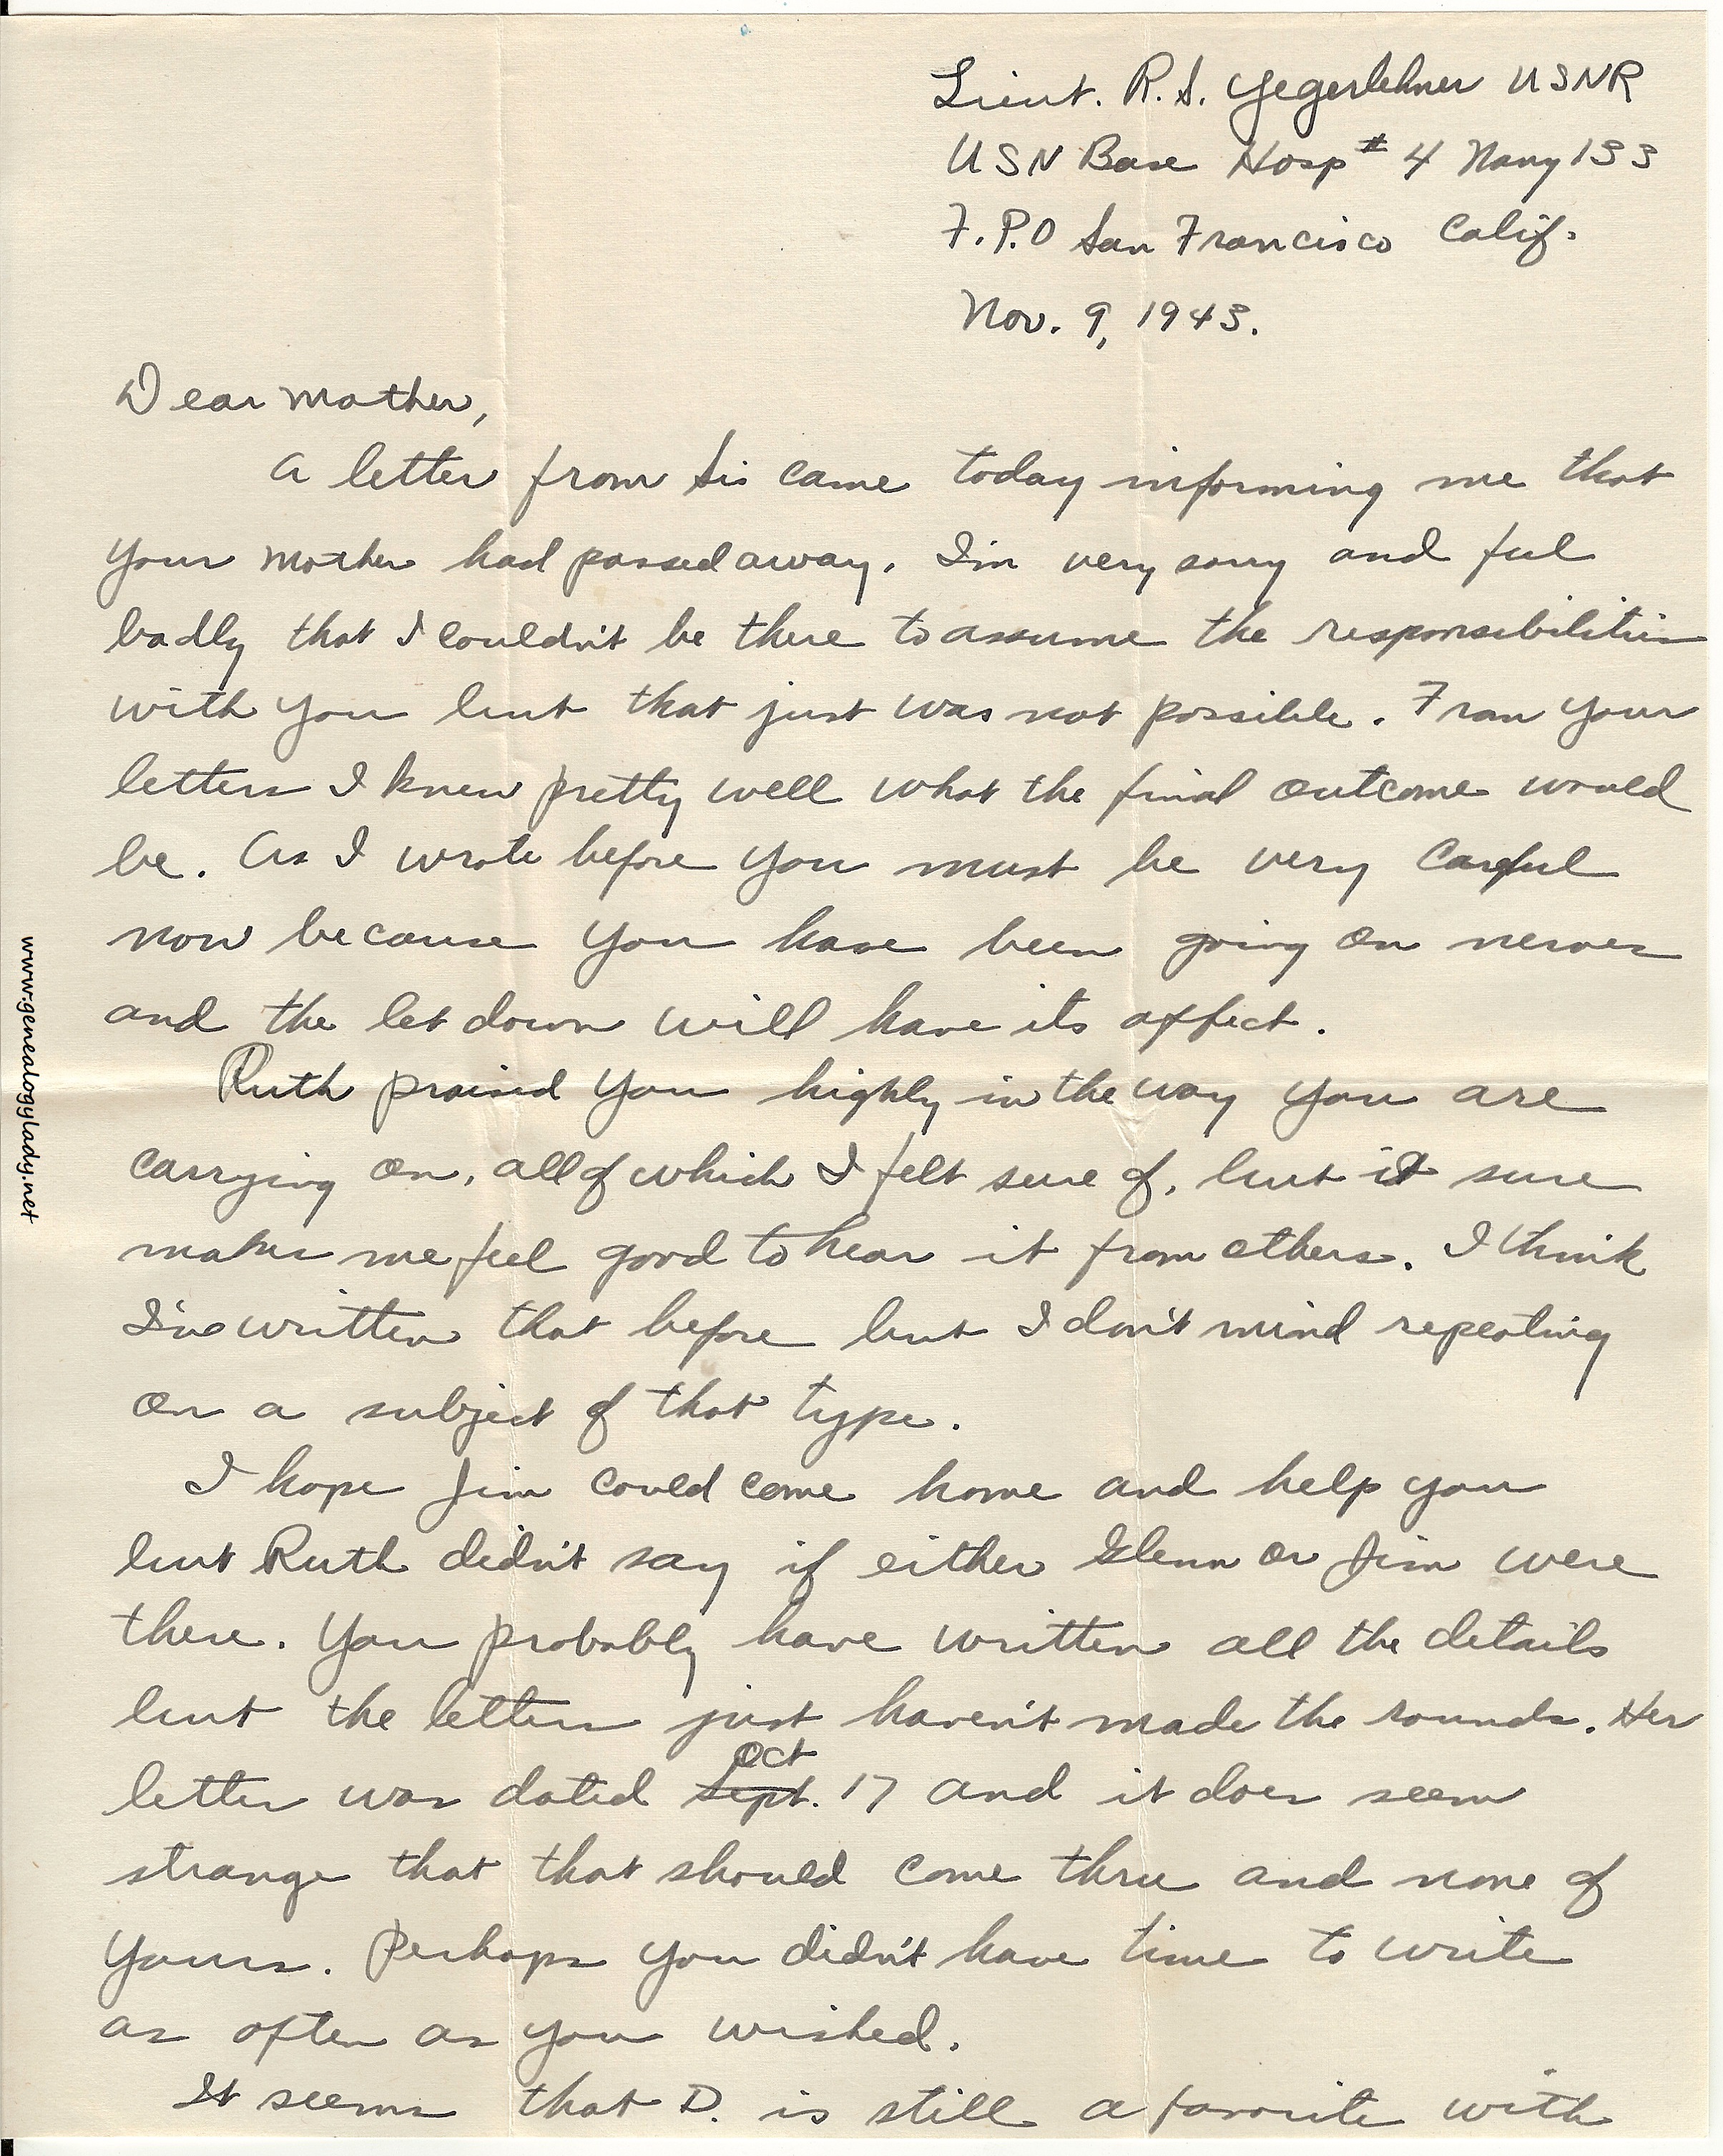 Lieut. R. S. Yegerlehner USNR
USN Base Hosp # 4 Navy 133
F.P.O San Francisco Calif.
Nov. 9, 1943.
Dear Mother,
A letter from Sis came today informing me that
your mother had passed away. I'm very sorry and feel
badly that I couldn't be there to assume the responsibilities
with you but that just was not possible. From your
letters I knew pretty well what the final outcome would
be. As I wrote before you must be very careful
now because you have been going on nerves
and the let down will have its affect.
Ruth praised you highly in the way you are
carrying on, all of which I felt sure of, but it sure
makes me feel good to hear it from others. I think
I've written that before but I don't mind repeating
on a subject of that type.
I hope Jim could come home and help you
but Ruth didn't say if either Glenn or Jim were
there. You probably have written all the details
but the letters just haven't made the rounds. Her
Oct
letter was dated Sept. 17 and it does seem
strange that that should come thru and none of
yours. Perhaps you didn't have time to write
as often as you wished.
It seems that D. is still a favorite with
www.genealogylady.net